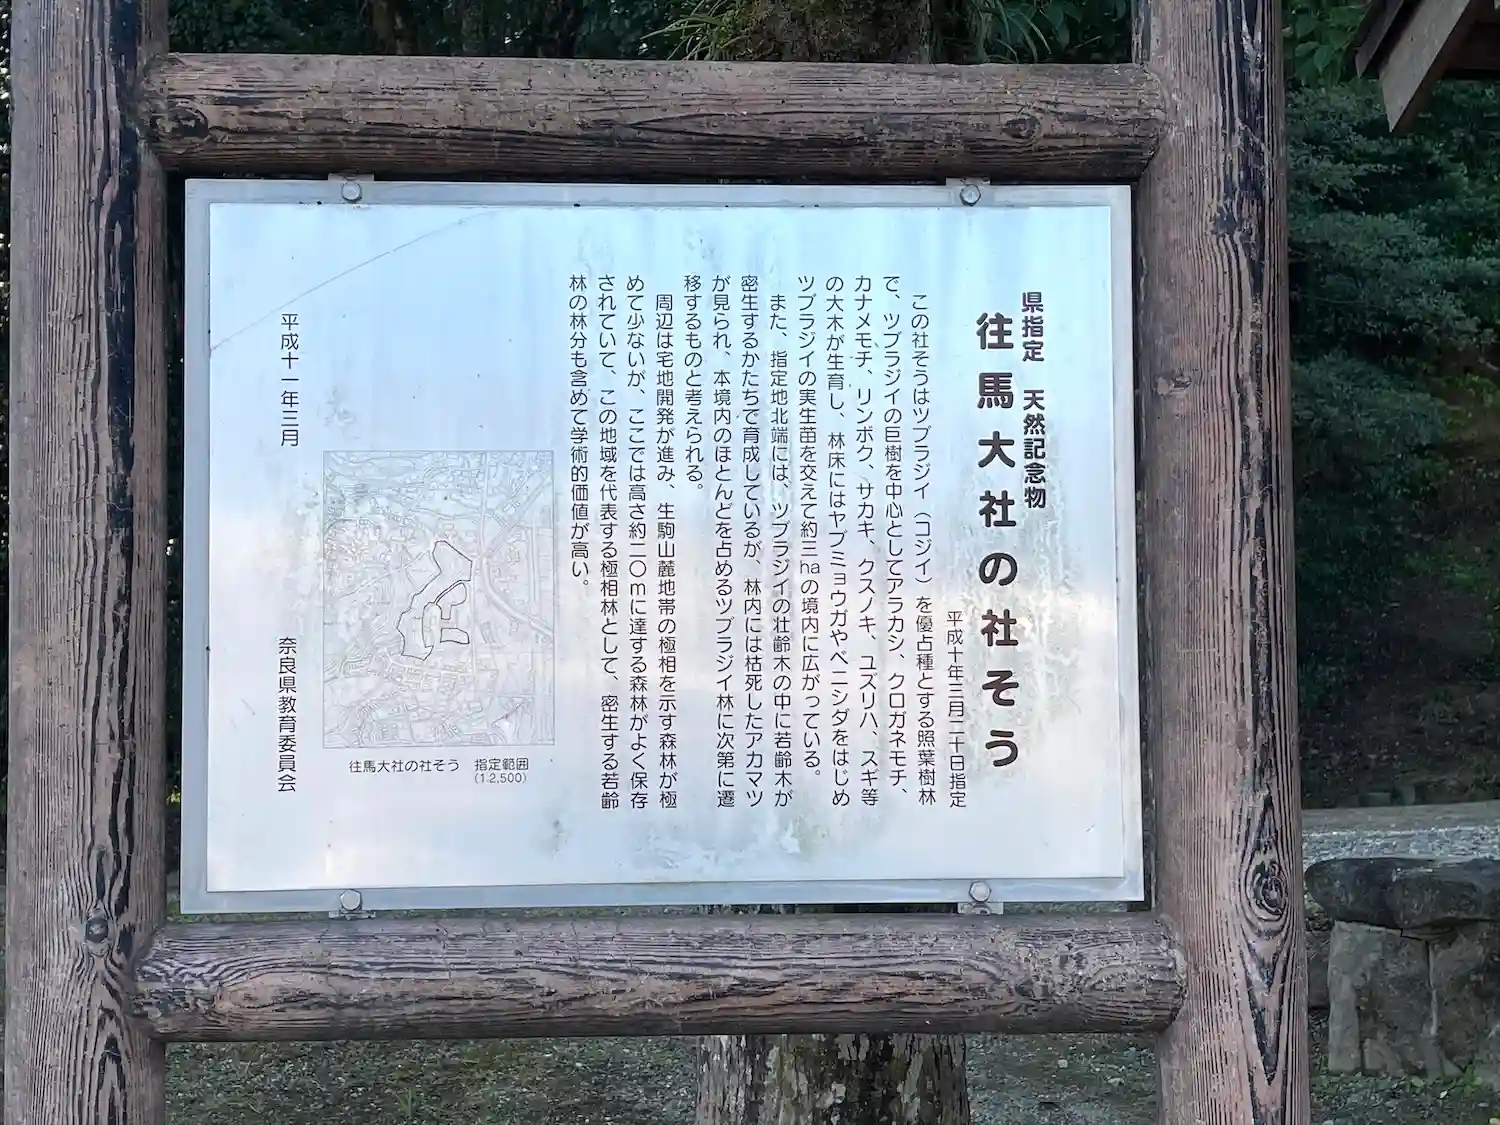 県指定　天然記念物
往馬大社の社そう
平成十年三月二十日指定
この社そうはツブラジイ（コジイ）を優占種とする照葉樹林
で、ツブラジイの巨樹を中心としてアラカシ、クロガネモチ、
カナメモチ、リンボク、サカキ、クスノキ、ユズリハ、スギ等
の大木が生育し、林床にはヤブミョウガやベニシダをはじめ
ツブラジイの実生苗を交えて約三haの境内に広がっている。
また、指定地北端には、ツブラジイの壮齢木の中に若齢木が
密生するかたちで育成しているが、林内には枯死したアカマツ
が見られ、本境内のほとんどを占めるツブラジイ林に次第に遷
移するものと考えられる。
周辺は宅地開発が進み、生駒山麓地帯の極相を示す森林が極
めて少ないが、ここでは高さ約二〇mに達する森林がよく保存
されていて、この地域を代表する極相林として、密生する若齢
林の林分も含めて学術的価値が高い。
往馬大社の社そう　指定範囲
(1:2,500)
平成十一年三月
奈良県教育委員会